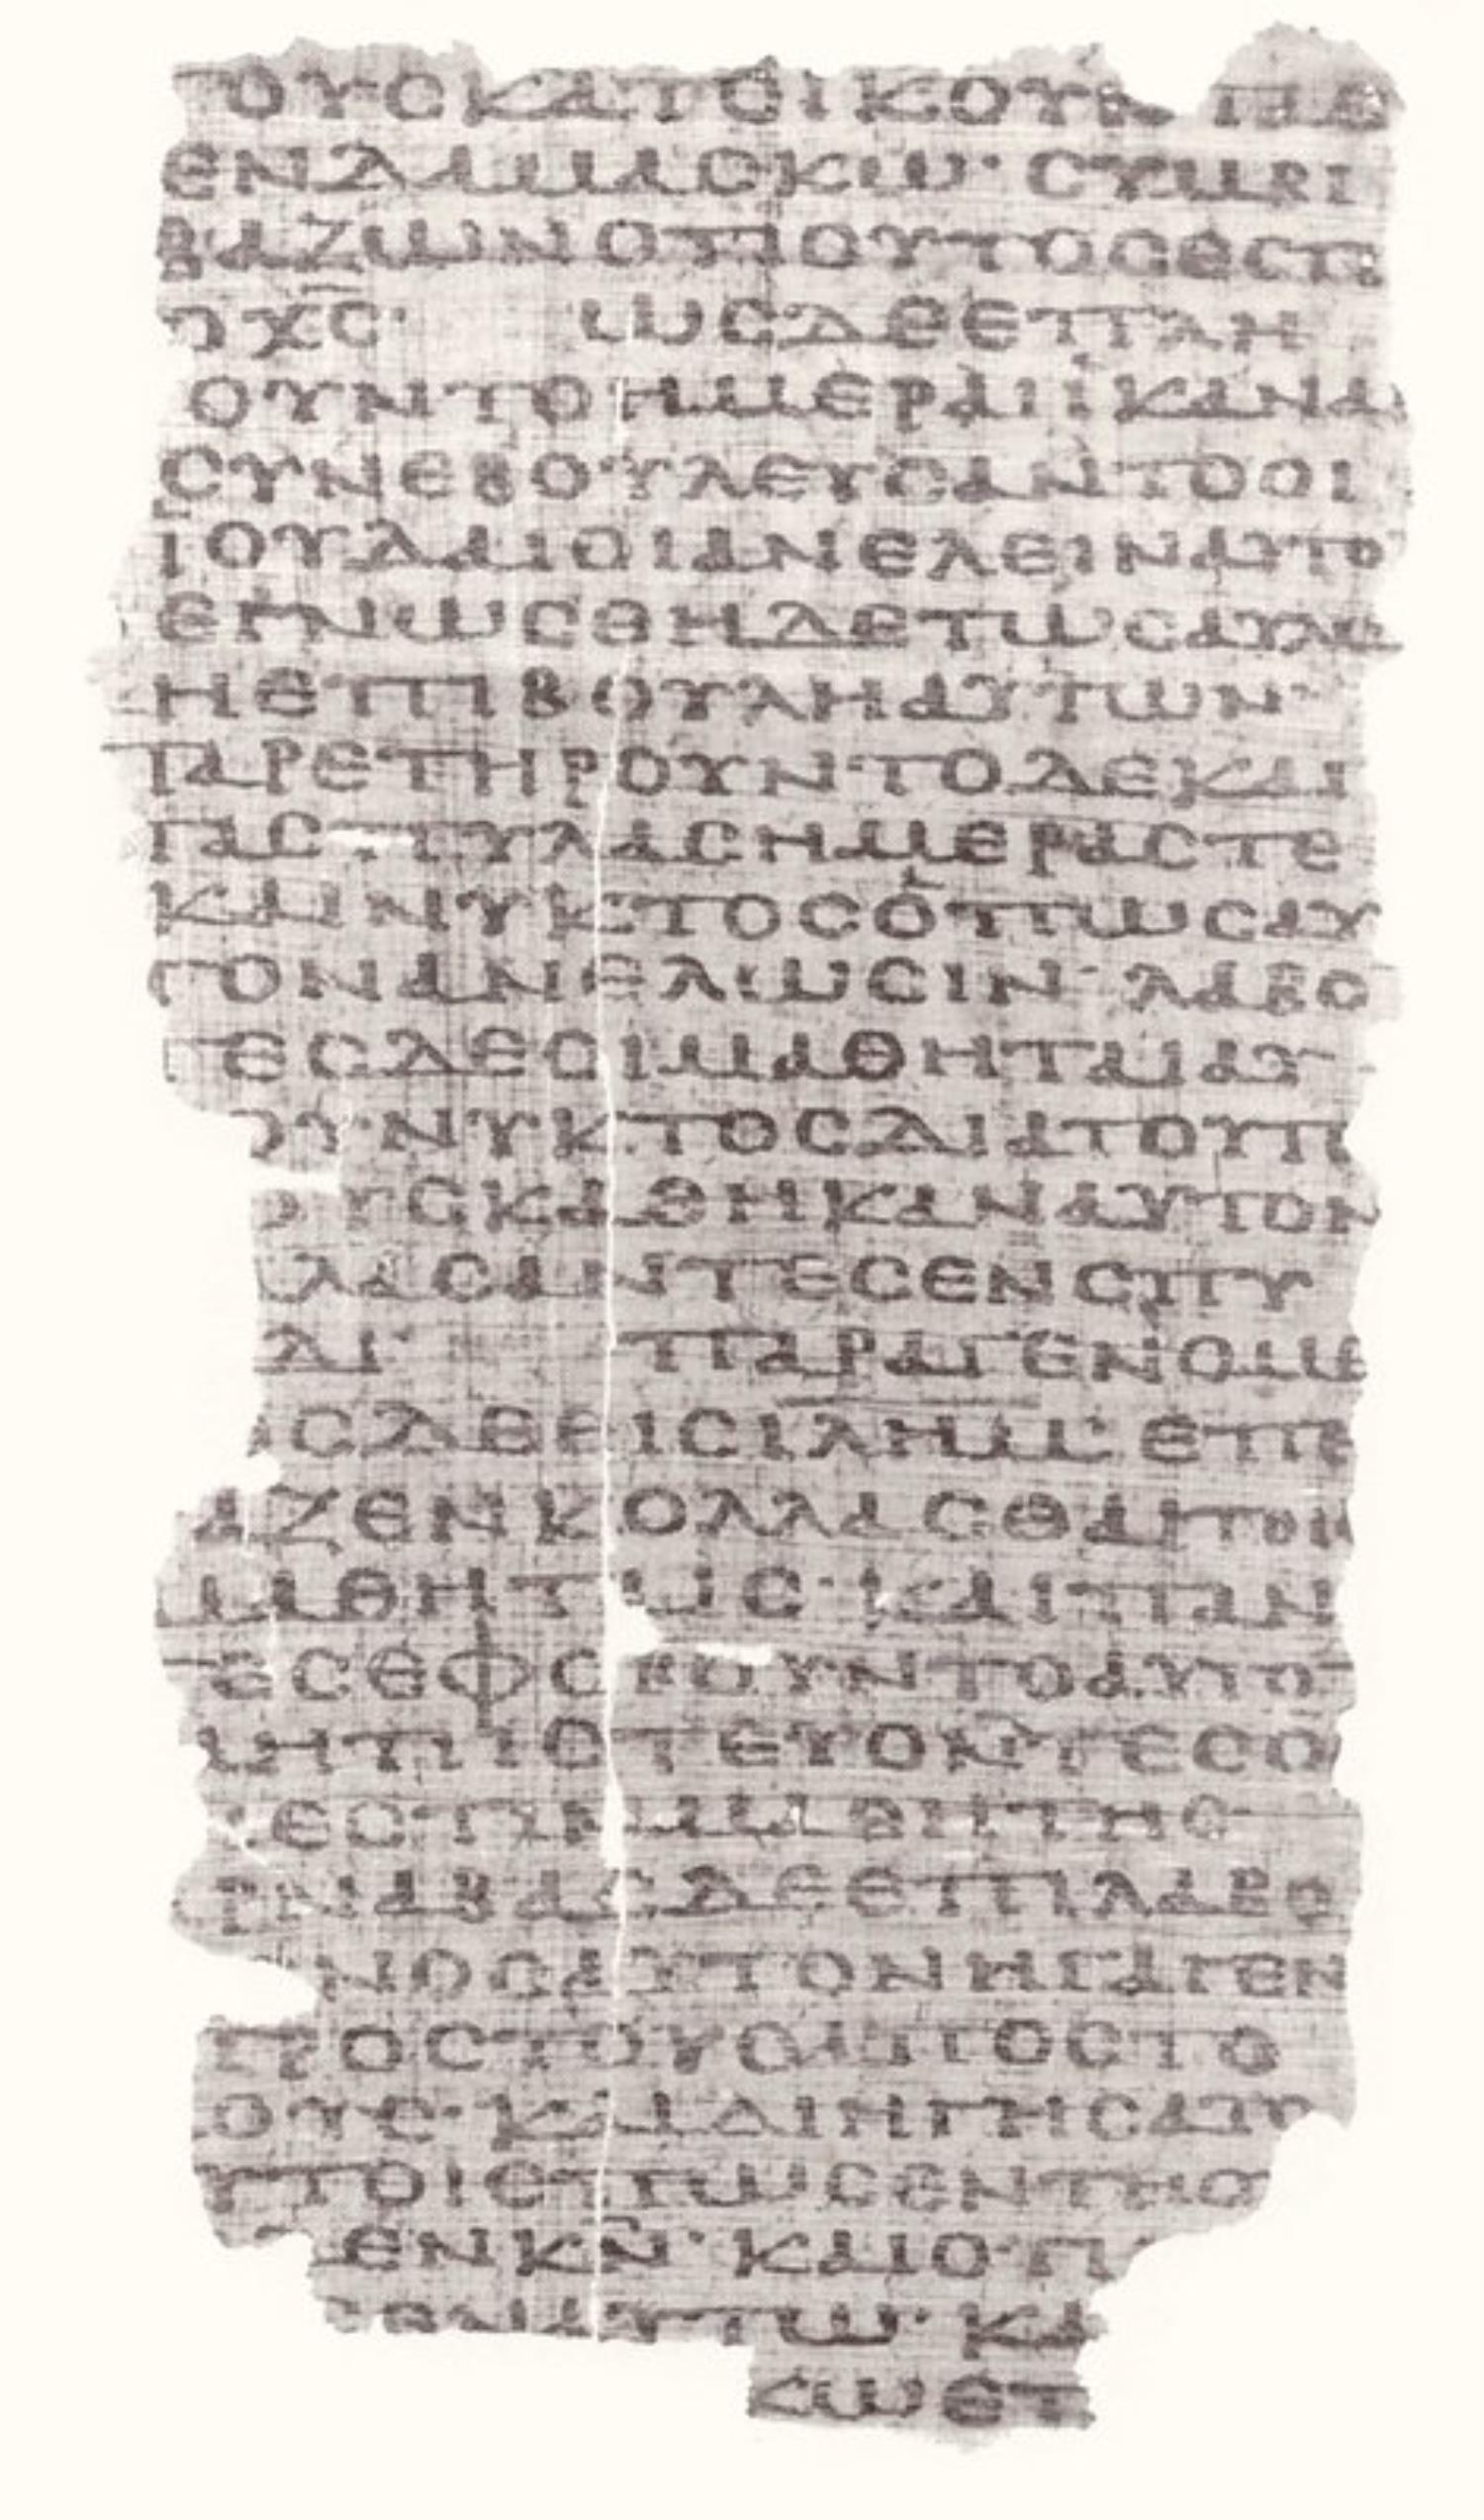 ΤΟΥϹΚΑΤΕΙΚΟΥΝΤΑϹ
ΕΝΔΑΜΑϹΚΩ· ϹΥΜΒΙ
ΒΑΖΩΝΟΤΙΟΥΤΟϹΕϹΤΙ
Ο Χ̅Ϲ̅· ΩϹΔΕΕΠΛΗ
ΟΥΝΤΟΗΜΕΡΑΙΙΚΑΝΑΙ
ϹΥΝΕΒΟΥΛΕΥϹΑΝΤΟΟΙ
ΙΟΥΔΑΙΟΙΑΝΕΛΕΙΝΑΥΤΟ
ΕΓΝΩϹΘΗΔΕΤΩϹΑΥΛΩ
ΗΕΠΙΒΟΥΛΗΑΥΤΩΝ·
ΠΑΡΕΤΗΡΟΥΝΤΟΔΕΚΑΙ
ΤΑϹΠΥΛΑϹΗΜΕΡΑϹΤΕ
ΚΑΙΝΥΚΤΟϹΟΠΩϹΑΥ
ΤΟΝΑΝΕΛΩϹΙΝ· ΛΑΒΟ
ΤΕϹΔΕΟΙΜΑΘΗΤΑΙΑΥ
ΟΥΝΥΚΤΟϹΔΙΑΤΟΥΤΙ
ΟΥϹΚΑΘΗΚΑΝΑΥΤΟΝ
ΑΛΑϹΑΝΤΕϹΕΝϹΠΥ
ΔΙ· ΠΑΡΑΓΕΝΟΜΕ
ΟϹΔΕΕΙϹΙΛΗΜ· ΕΠΕ
ΑΖΕΝΚΟΛΛΑϹΘΑΙΤΟΙϹ
ΜΑΘΗΤΑΙϹ· ΚΑΙΠΑΝ
ΤΕϹΕΦΟΒΟΥΝΤΟΑΥΤΟ
ΜΗΠΙϹΤΕΥΟΝΤΕϹΟΤΙ
ΕϹΤΙΝΜΑΘΗΤΗϹ
ΒΑΡΝΑΒΑϹΔΕΕΠΙΛΑΒΟ
ΝΟϹΑΥΤΟΝΗΓΑΓΕΝ
ΠΡΟϹΤΟΥϹΑΠΟϹΤΟ
ΛΟΥϹ· ΚΑΙΔΙΗΓΗϹΑΤΟ
ΑΥΤΟΙϹΠΩϹΕΝΤΗΟ
ΔΕΝΚ̅Ν̅· ΚΑΙΟΤΙ
ϹΕΝΑΥΤΩ· ΚΑ
ΚΩΕΠ